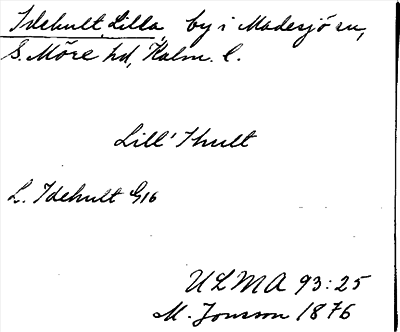 Idehult, Lilla, by i Madesjö sn,
S. Möre hd, Kalm. l.
Lill' Ihult
L. Idehult G16
ULMA 93:25
M. Jonsson 1876